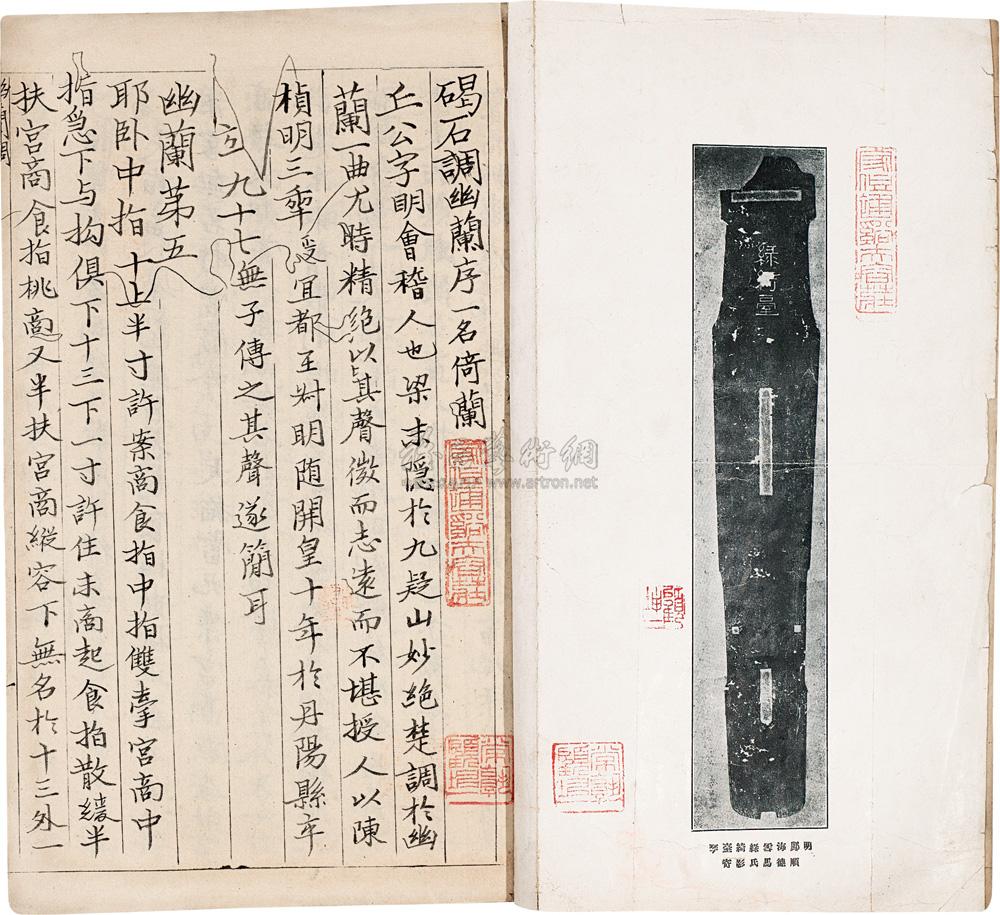 綠綺臺
明鄺海雪綠綺臺琴
順德馬氏影寄
碣石調幽蘭序一名倚蘭
丘公字明會稽人也梁末隱於九疑山妙絕楚調於幽
蘭一曲尤時精絕以其聲微而志遠而不堪授人以陳
禎明三年授宜都王叔明随開皇十年於丹陽縣卒
𠅘九十七無子傳之其聲遂簡耳
幽蘭苐五
耶卧中指十上半寸許案商食指中指雙牽宮商中
指急下与拘俱下十三下一寸許住末商起食指散緩半
扶宮商食指挑商又半扶宮商縱容下無名於十三外一
雅昌藝術網
www.artron.net